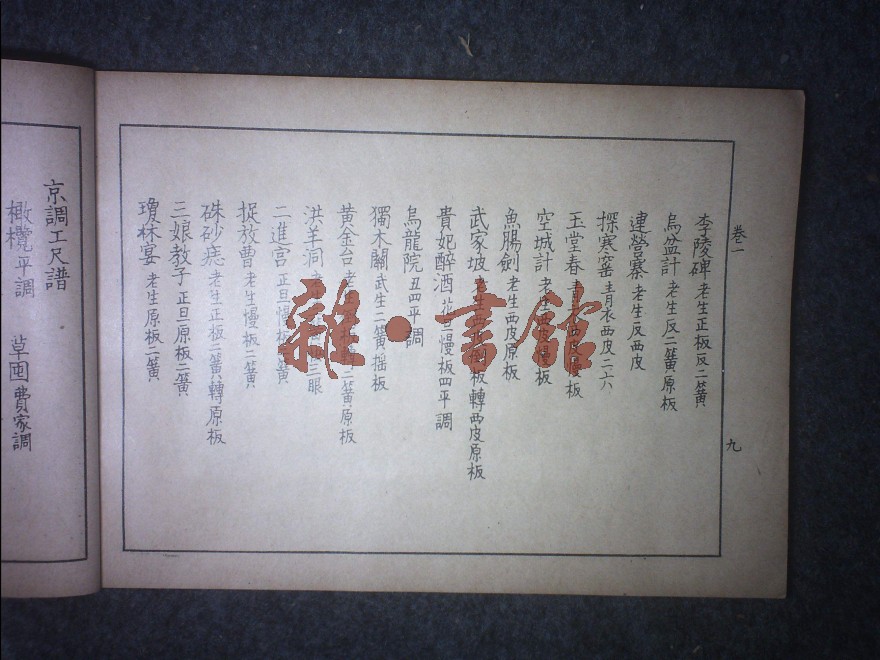 卷一
九
李陵碑 老生正板反二簧
烏盆計 老生反二簧原板
連營寨 老生反西皮
探寒窰 青衣西皮二六
玉堂春 西皮慢板
空城計 老生西皮慢板
魚腸劍 老生西皮原板
武家坡 老生西皮倒板轉西皮原板
貴妃醉酒 花旦慢板四平調
烏龍院 丑四平調
獨木關 武生二簧搖板
黃金台 老生 二簧原板
洪羊洞 老生 三眼
二進宮 正旦慢板二簧
捉放曹 老生慢板二簧
硃砂痣 老生正板二簧轉原板
三娘教子 正旦原板二簧
瓊林宴 老生原板二簧
京調工尺譜
橄欖平調 草囤費家調
雜·書館